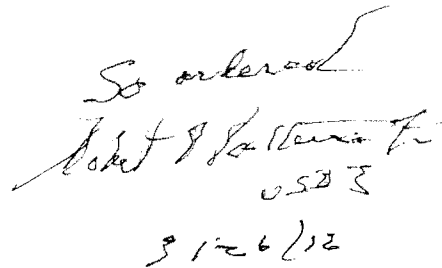 So ordered
Robert P Patterson Jr
USDJ
3/26/12